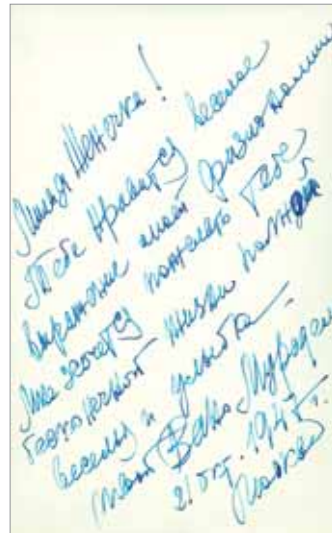 Милая Женечка!
Тебе нравится веселое
выражение моей физиономии
Мне хочется пожелать тебе
бесконечной жизни полной
веселья и улыбка
твой Вано Мурадели
21 окт. 1947 г.
Москва